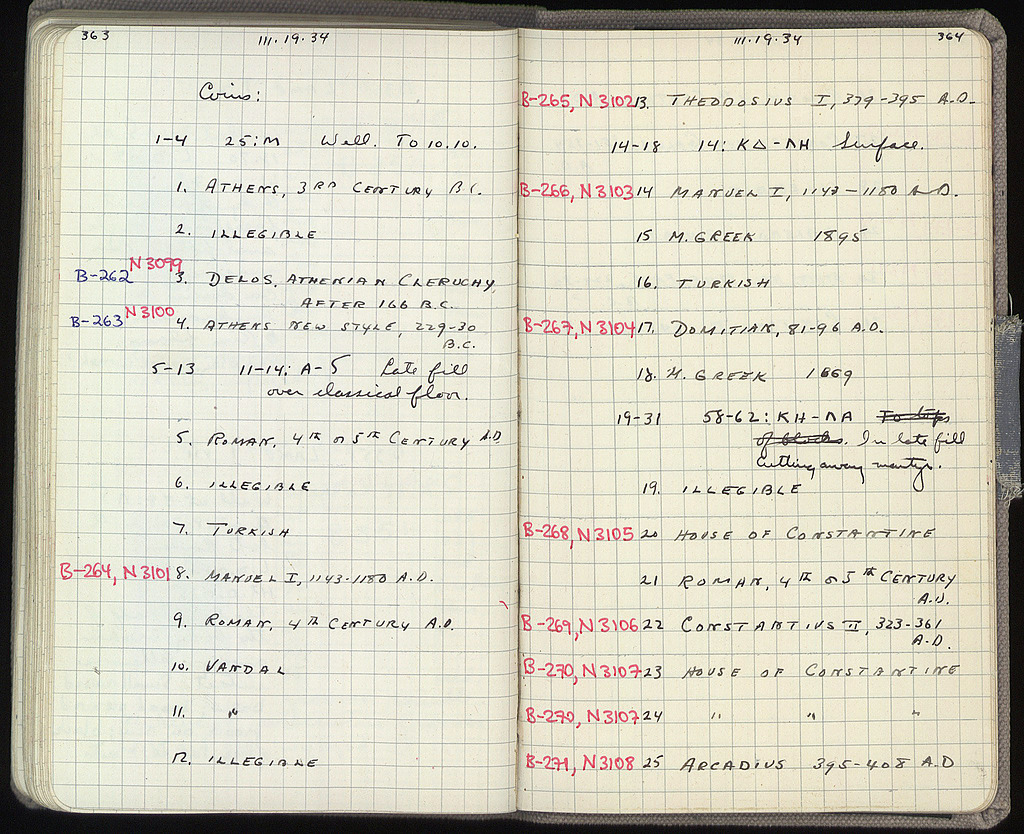 363
III.19.34
Coins:
1-4 25:M Well. To 10.10.
1. ATHENS, 3RD CENTURY B.C.
2. ILLEGIBLE
N3099
B-262 3. DELOS, ATHENIAN CLERUCHY,
AFTER 166 B.C.
B-263 N3100 4. ATHENS NEW STYLE, 229-30
B.C.
5-13 11-14: A-5 Late fill
over classical floor.
5. ROMAN, 4TH OR 5TH CENTURY A.D
6. ILLEGIBLE
7. TURKISH
B-264, N3101 8. MANUEL I, 1143-1180 A.D.
9. ROMAN, 4TH CENTURY A.D.
10. VANDAL
11. "
12. ILLEGIBLE
III.19.34
364
B-265, N3102 13. THEODOSIUS I, 379-395 A.D.
14-18 14: ΚΔ-ΛΗ Surface.
B-266, N3103 14 MANUEL I, 1143-1180 A.D.
15 M. GREEK 1895
16. TURKISH
B-267, N3104 17. DOMITIAN, 81-96 A.D.
18. M. GREEK 1869
19-31 58-62: ΚΗ-ΛΑ To tops
of blocks. In late fill
cutting away
19. ILLEGIBLE
B-268, N3105 20 HOUSE OF CONSTANTINE
21 ROMAN, 4TH OR 5TH CENTURY
A.D.
B-269, N3106 22 CONSTANTIUS II, 323-361
A.D.
B-270, N3107 23 HOUSE OF CONSTANTINE
B-270, N3107 24 " " "
B-271, N3108 25 ARCADIUS 395-408 A.D